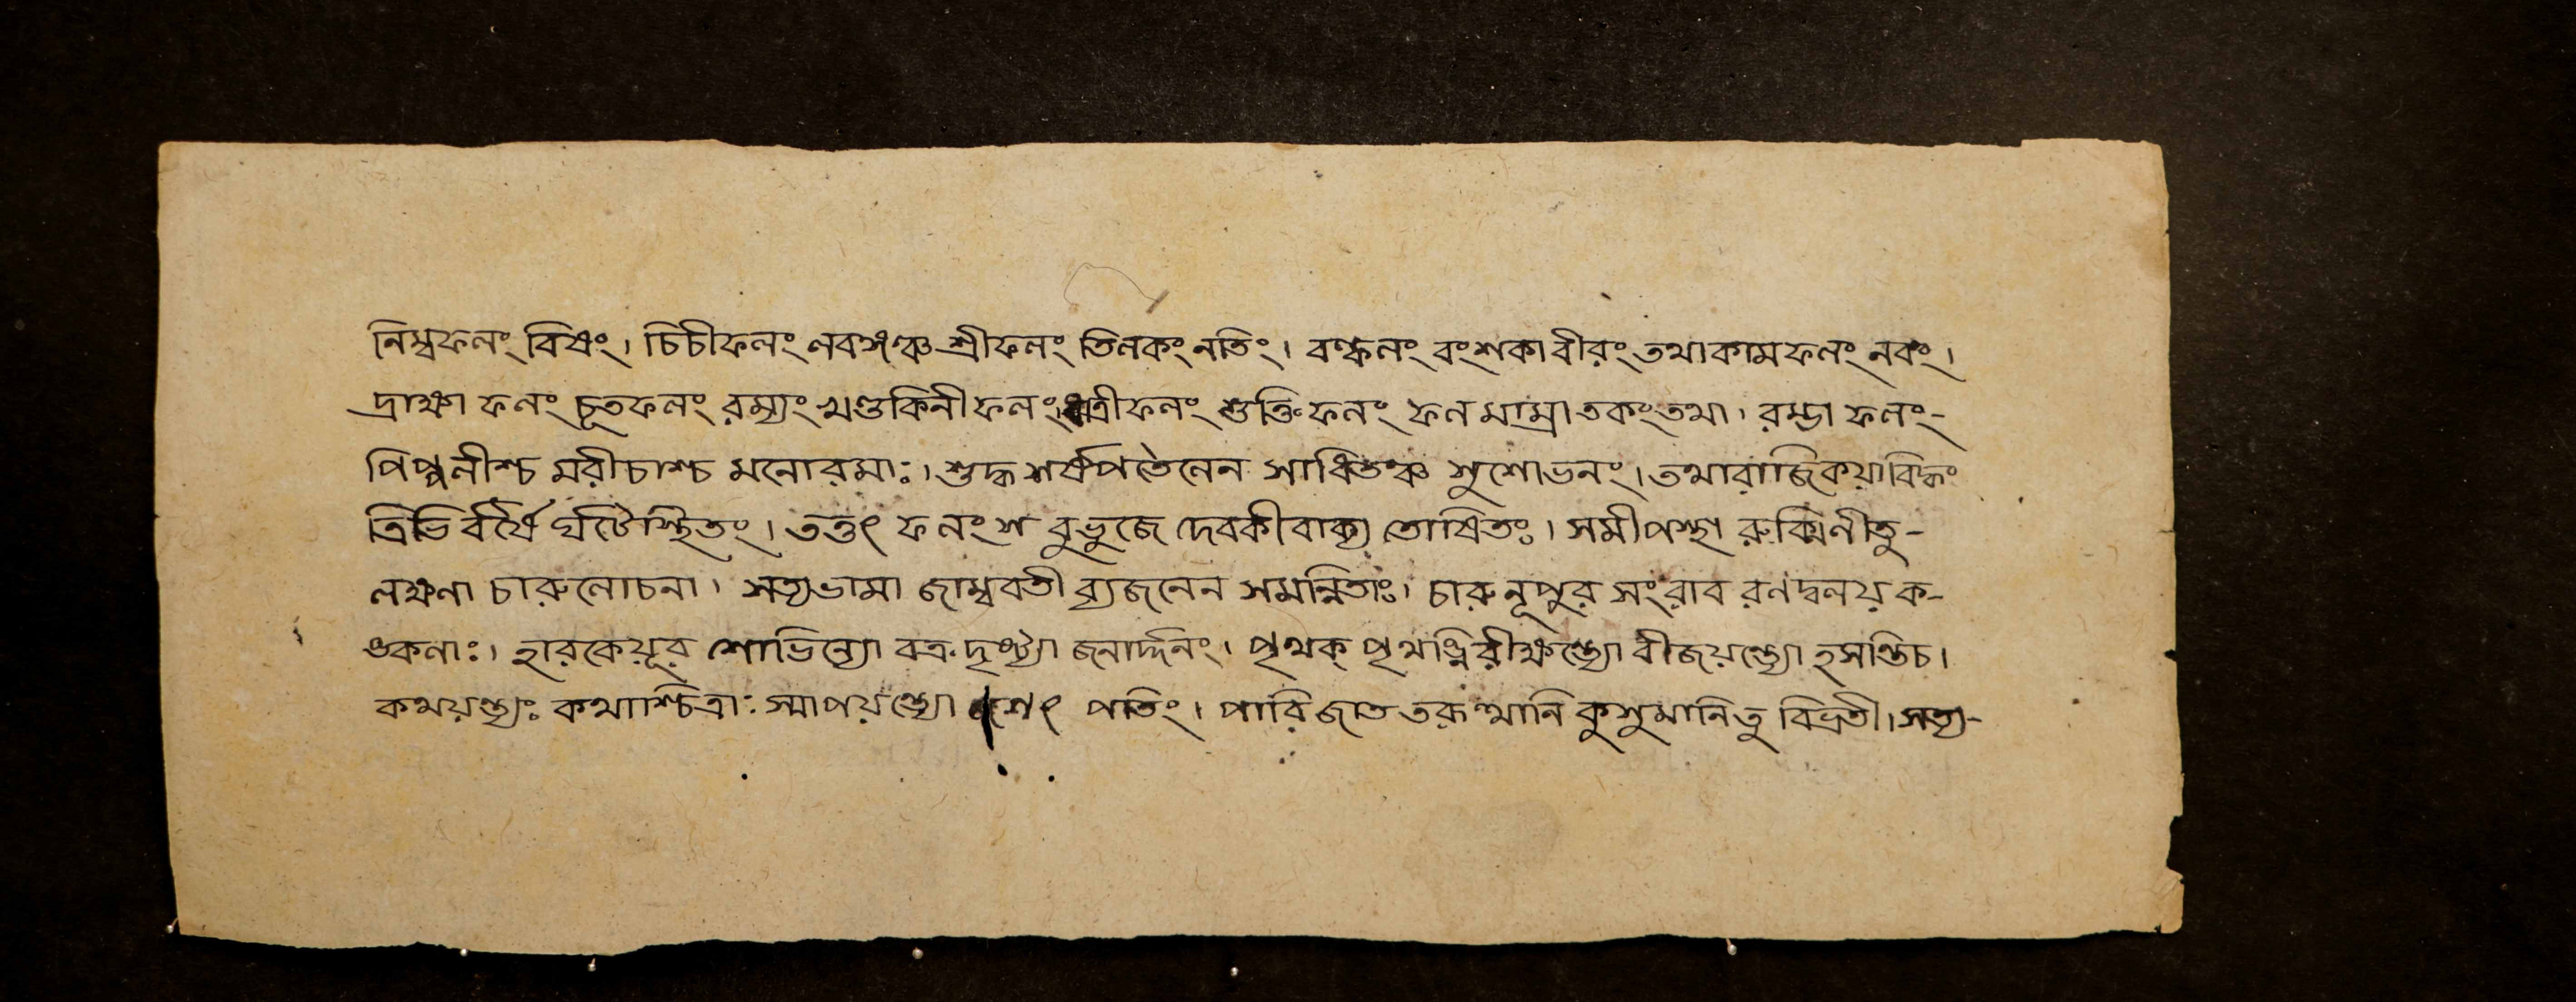 নিম্বফলং বিষং। চিচীফলং লবঙ্গঞ্চ শ্রীফলং তিলকং লতিং। বল্কলং বংশকাবীরং তথাকামফলং নবং।
দ্রাক্ষা ফলং চূতফলং রম্যং খণ্ডকিনীফলং ধাত্রীফলং শুক্তিফলং ফলমাম্রাতকং তথা। রম্ভা ফলং-
পিপ্পলীশ্চ মরীচাশ্চ মনোরমাঃ। শুদ্ধ শর্ষপতৈলেন সাধিতঞ্চ সুশোভনং। তথারাজিকয়াবিদ্ধং
ত্রিভির্বর্ষৈর্ঘটৈস্থিতং। তত্তৎ ফলং স বুভুজে দেবকীবাক্য তোষিতঃ। সমীপস্থা রুক্মিনীতু-
লক্ষণা চারুলোচনা। সত্যভামা জাম্ববতী ব্যজনেন সমন্বিতাঃ। চারুনূপুর সংরাব রণদ্বলয় ক-
ঙ্কণাঃ। হারকেয়ূর শোভিন্যো বক্রদৃষ্ট্যা জনার্দ্দনং। পৃথক্ পৃথঙ্নিরীক্ষন্ত্যো বীজয়ন্ত্যো হসন্তিচ।
কথয়ন্ত্যঃ কথাশ্চিত্রাঃ স্মাপয়ন্ত্যো পতিং। পারিজাত তরূত্থানি কুসুমানিতু বিভ্রতী। সত্য-